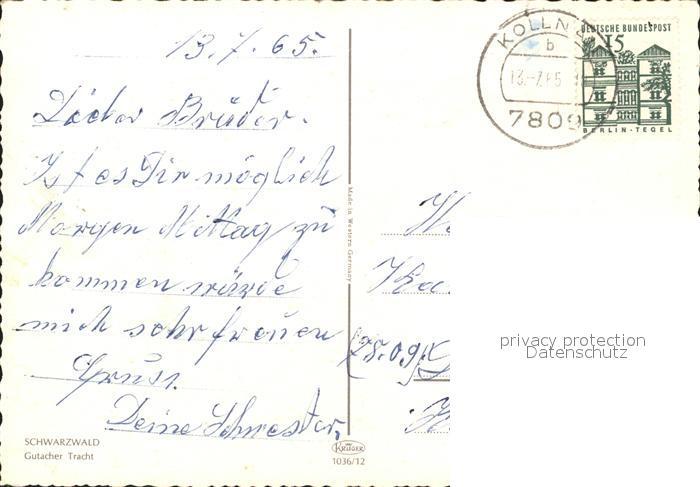 13.7.65.
Lieber Brüder.
Ist es Dir möglich
Morgen Mittag zu
kommen würde
mich sehr freuen
Gruss.
Deine Schwester,
SCHWARZWALD
Gutacher Tracht
Made in Western Germany
KRÜGER
1036/12
KOLLN
b
13.-7.65
7809
DEUTSCHE BUNDESPOST
15
BERLIN-TEGEL
(78.09)
privacy protection
Datenschutz